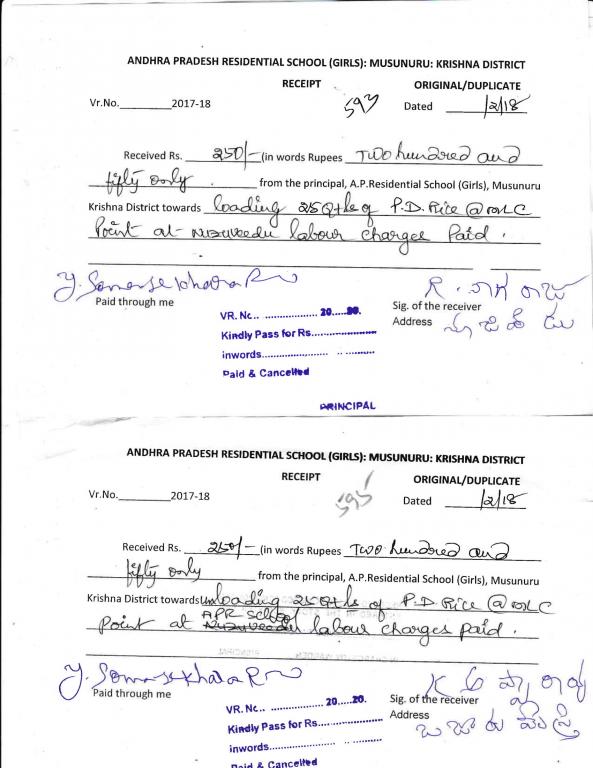 ANDHRA PRADESH RESIDENTIAL SCHOOL (GIRLS): MUSUNURU: KRISHNA DISTRICT
RECEIPT ORIGINAL/DUPLICATE
Vr.No.__________2017-18 593 Dated /2/18
Received Rs. 250/- (in words Rupees Two hundred and
fifty only from the principal, A.P.Residential School (Girls), Musunuru
Krishna District towards loading 25 Qtls of P.D. Rice @ MLC
Point at Nuzuveedu labour charges Paid.
Y. Somasekhara R
Paid through me Sig. of the receiver
Address
VR. Nc.. .................. 20.....20.
Kindly Pass for Rs......................
inwords....................... .. ...........
Paid & Cancelled
PRINCIPAL
ANDHRA PRADESH RESIDENTIAL SCHOOL (GIRLS): MUSUNURU: KRISHNA DISTRICT
RECEIPT ORIGINAL/DUPLICATE
Vr.No.__________2017-18 Dated /2/18
Received Rs. 250/- (in words Rupees Two hundred and
fifty only from the principal, A.P.Residential School (Girls), Musunuru
Krishna District towards Unloading 25 Qtls of P.D. Rice @ MLC
APR School
Point at Nuzuveedu labour charges paid.
Y. Somasekhara R
Paid through me Sig. of the receiver
Address
VR. Nc.. .................. 20.....20.
Kindly Pass for Rs......................
inwords....................... .. ...........
Paid & Cancelled